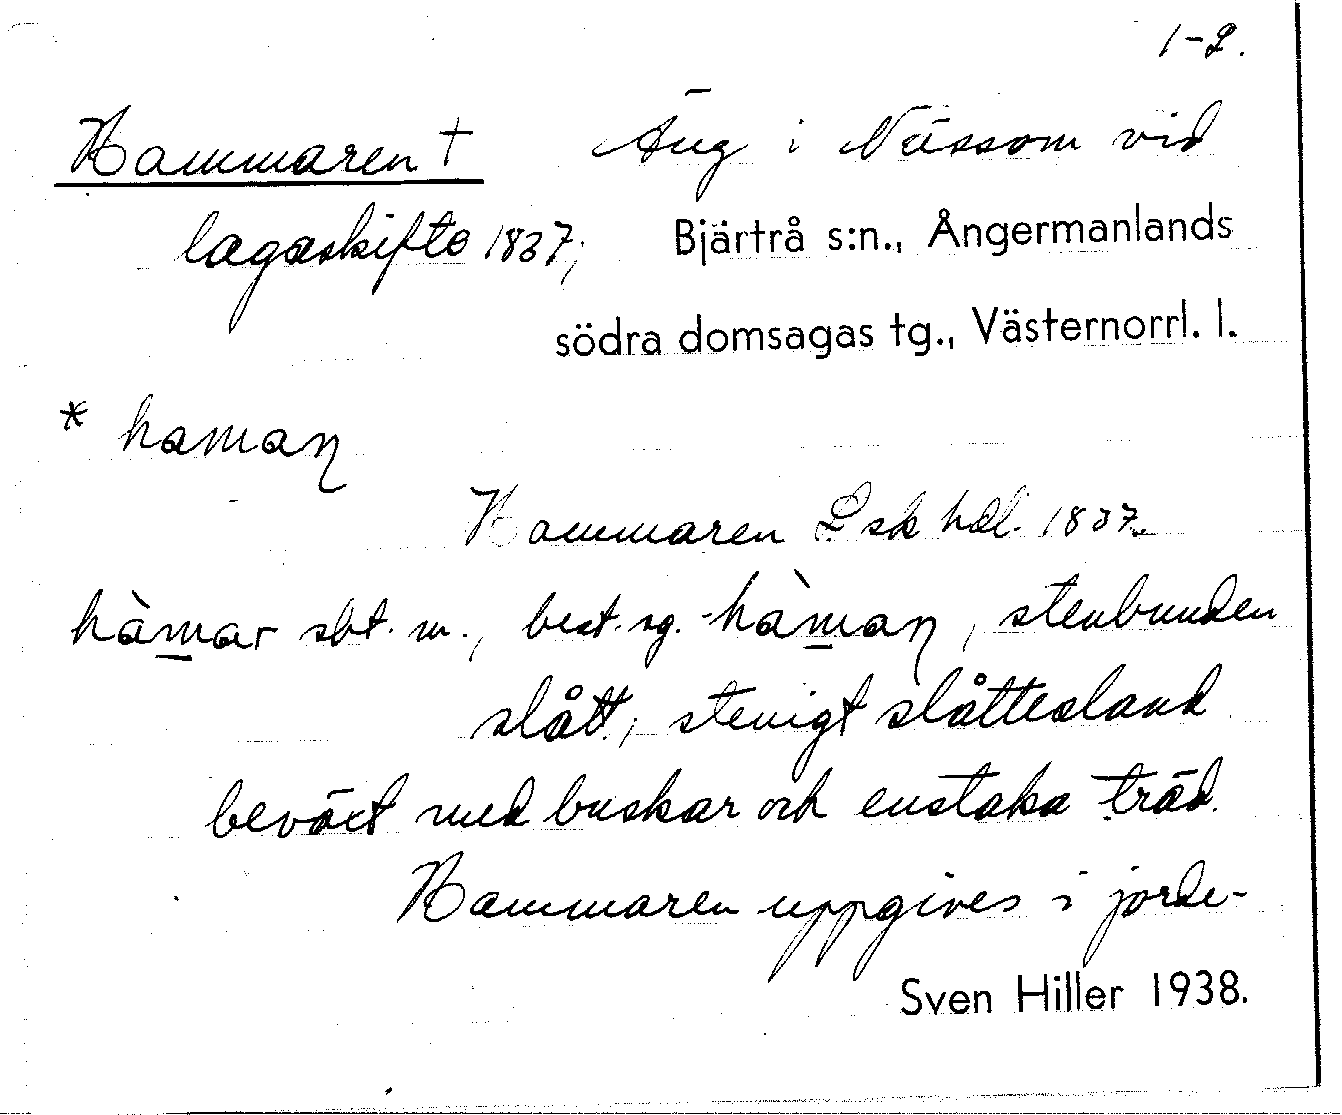 1-2.
Hammaren † Äng i Nässom vid
lagaskifte 1837; Bjärtrå s:n., Ångermanlands
södra domsagas tg., Västernorrl. l.
* haman̩
Hammaren Lsk hdl. 1837.
hàm̲ar sbt. m., best. sg. hàm̲an̩, stenbunden
slått, stenigt slåttesland
beväxt med buskar och enstaka träd.
Hammaren uppgives i jorde-
Sven Hiller 1938.